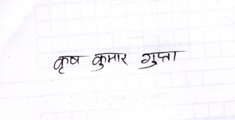 कृष कुमार गुप्ता